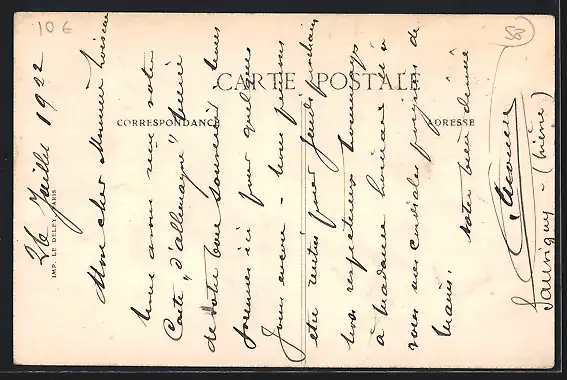 10 €
CARTE POSTALE
CORRESPONDANCE
ADRESSE
IMP. LE DELEY, PARIS
26 Juillet 1922
Mon cher Monsieur Loiseau
Nous avons reçu votre
Carte "d'allemagne" merci
de votre bon souvenir nous
sommes ici pour quelques
jours encore - nous pensons
être rentrés pour jeudi prochain
nos respectueux hommages
à Madame Loiseau et à
vous mes cordiales poignées de
mains.
votre bien dévoué
Sauvigny - (Nièvre)